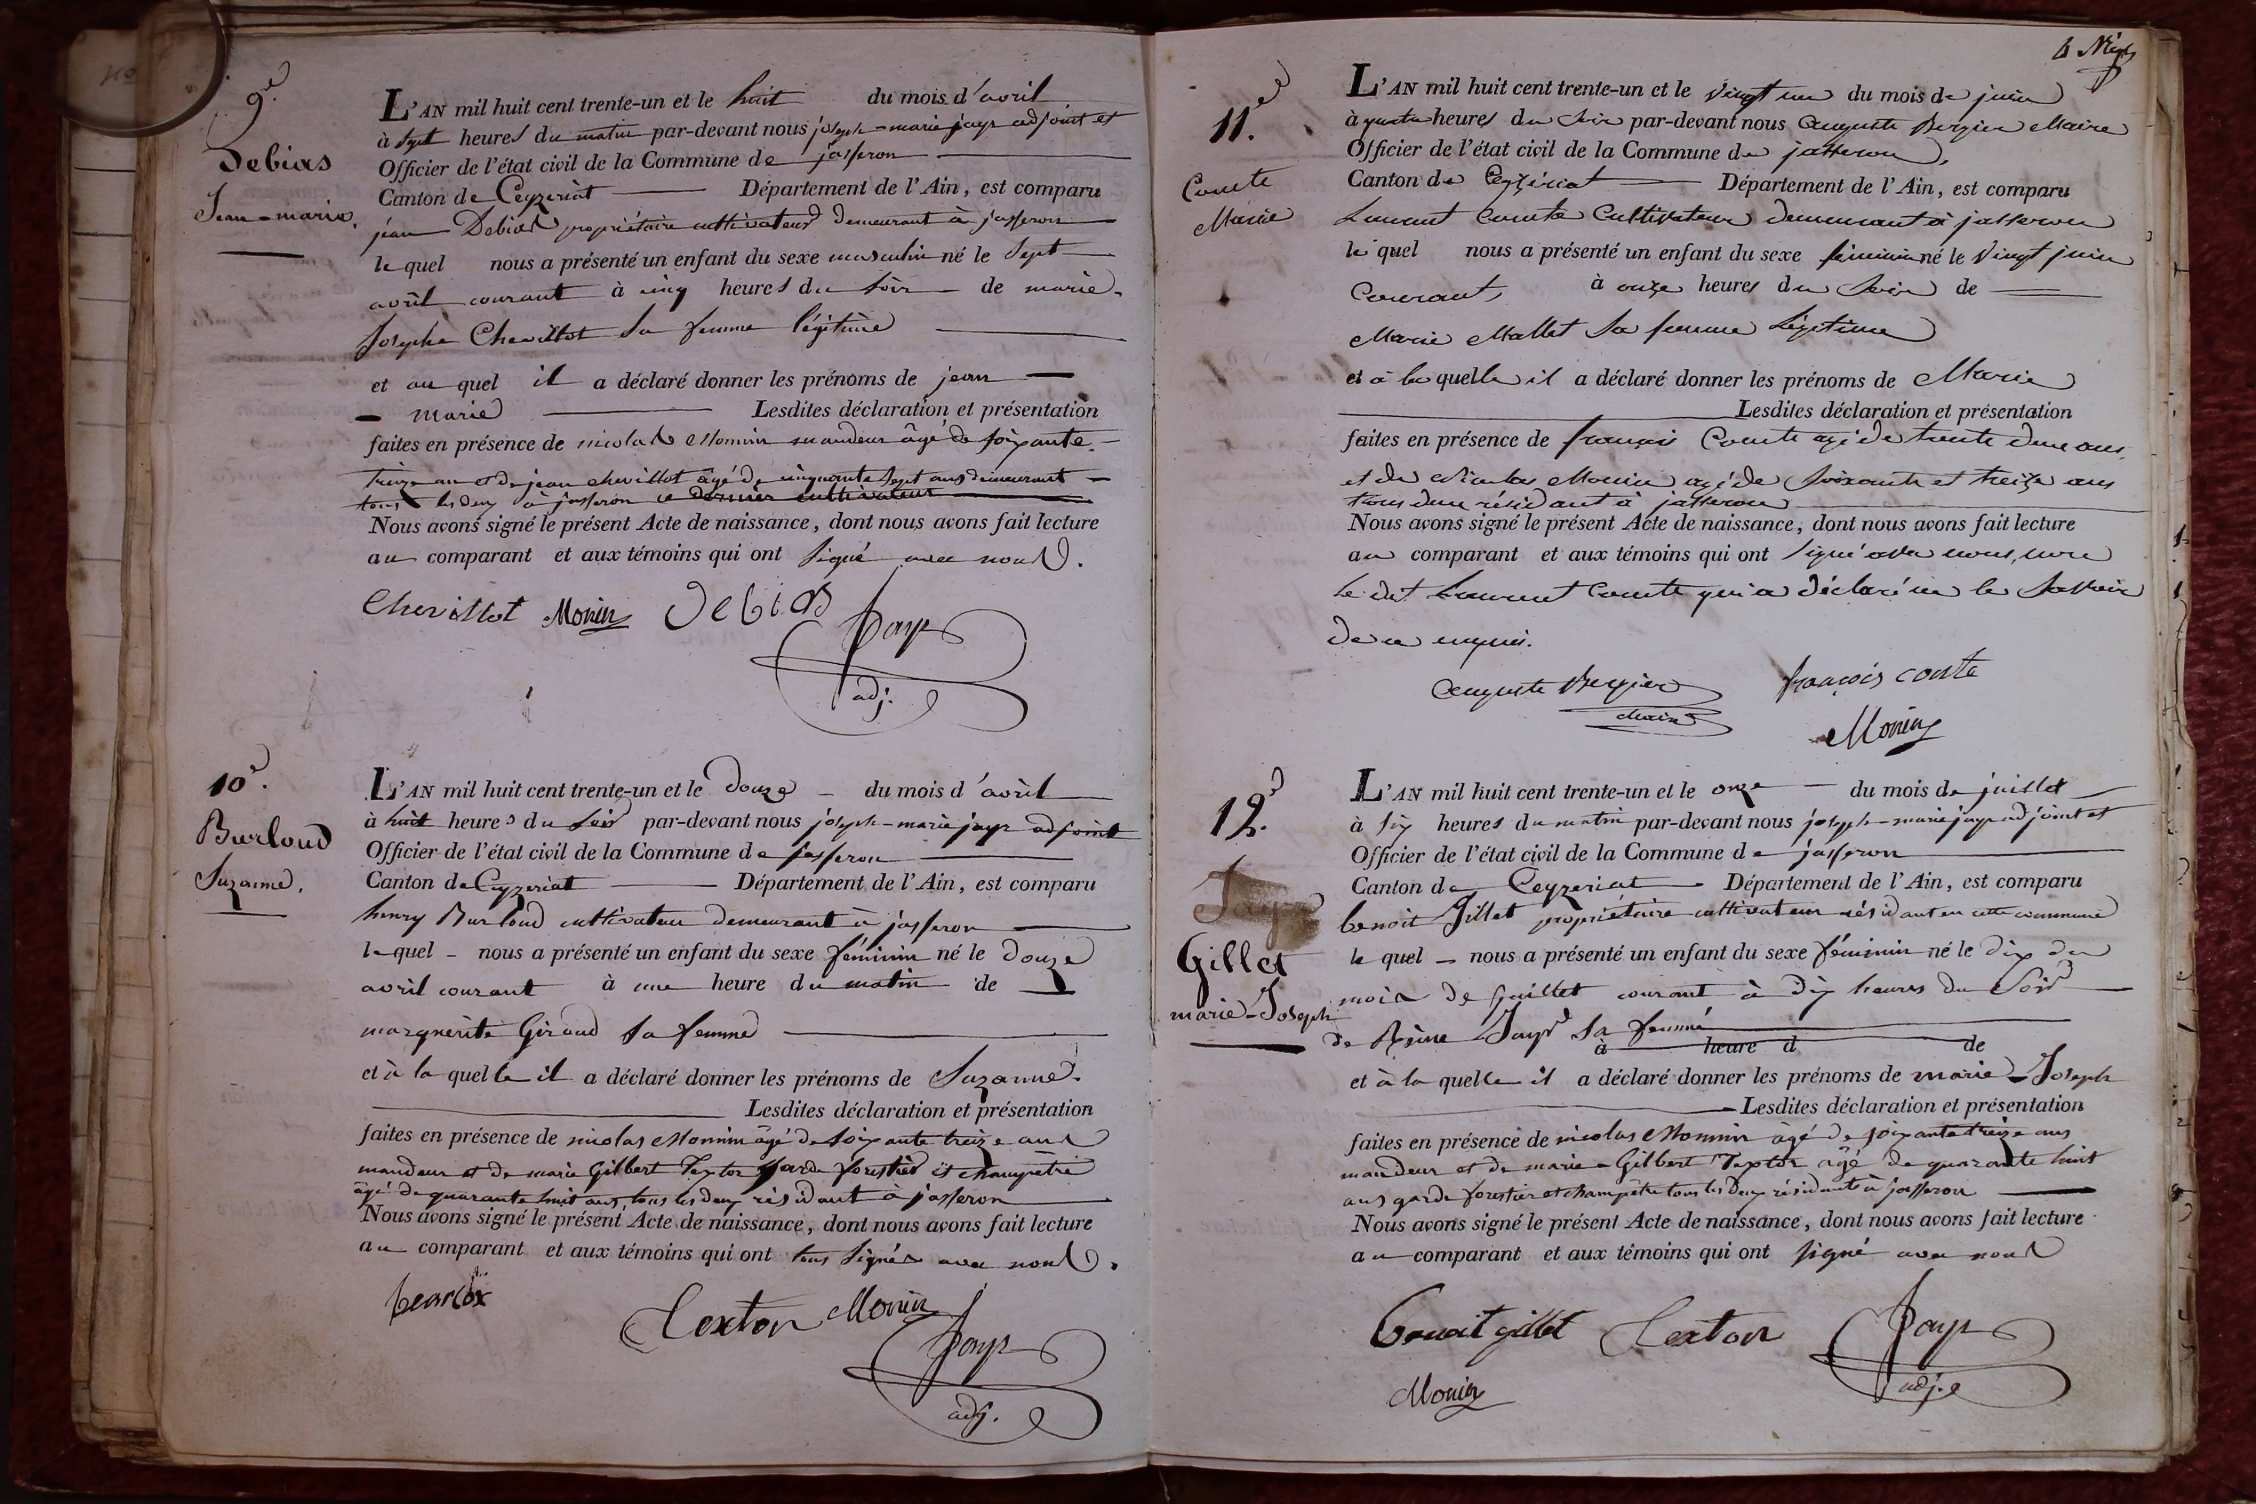 9e.
Debias
Jean-marie.
L'AN mil huit cent trente-un et le huit du mois d'avril
à sept heures du matin par-devant nous joseph-marie jayr adjoint et
Officier de l'état civil de la Commune de jasseron
Canton de Ceyzeriat Département de l'Ain, est comparu
jean Debias propriétaire cultivateur demeurant à jasseron
le quel nous a présenté un enfant du sexe masculin né le sept
avril courant à cinq heures du soir de marie-
Josephe Chevillot sa femme légitime
et au quel il a déclaré donner les prénoms de jean
marie Lesdites déclaration et présentation
faites en présence de nicolas Monnin mandeur âgé de soixante-
treize an et de jean chevillot âgé de cinquante sept ans demeurant
tous les deux à jasseron ce dernier cultivateur
Nous avons signé le présent Acte de naissance, dont nous avons fait lecture
au comparant et aux témoins qui ont signé avec nous.
Chevillot Monin Debias
Jayr
adj.
10e.
Burloud
Suzanne.
L'AN mil huit cent trente-un et le Douze du mois d'avril
à huit heures du soir par-devant nous joseph-marie jayr adjoint
Officier de l'état civil de la Commune de jasseron
Canton de Ceyzeriat Département de l'Ain, est comparu
henry Burloud cultivateur demeurant à jasseron
le quel nous a présenté un enfant du sexe féminin né le douze
avril courant à une heure du matin de
marguerite Giraud sa femme
et à la quelle il a déclaré donner les prénoms de Suzanne.
Lesdites déclaration et présentation
faites en présence de nicolas Monnin âgé de soixante treize ans
mandeur et de marie Gilbert Textor garde forestier et champêtre
âgé de quarante huit ans tous les deux résidant à jasseron
Nous avons signé le présent Acte de naissance, dont nous avons fait lecture
au comparant et aux témoins qui ont tous signés avec nous.
Textor Monin
Jayr
adj.
11.e
Comte
Marie
L'AN mil huit cent trente-un et le vingt un du mois de juin
à quatre heures du soir par-devant nous Auguste Bergier Maire
Officier de l'état civil de la Commune de jasseron,
Canton de Ceyzériat Département de l'Ain, est comparu
Laurent Comte Cultivateur demeurant à jasseron
le quel nous a présenté un enfant du sexe féminin né le vingt juin
Courant, à onze heures du soir de
Marie Mallet sa femme légitime
et à la quelle il a déclaré donner les prénoms de Marie
Lesdites déclaration et présentation
faites en présence de françois Comte agé de trente deux ans,
et de Nicolas Monin agé de soixante et treize ans
tous deux résidant à jasseron
Nous avons signé le présent Acte de naissance, dont nous avons fait lecture
au comparant et aux témoins qui ont signé avec nous, non
le dit Laurent Comte qui a déclaré ne le savoir
de ce enquis.
Auguste Bergier françois conte
Maire
Monin
12e.
Gillet
marie-Joseph
L'AN mil huit cent trente-un et le onze du mois de juillet
à six heures du matin par-devant nous joseph-marie jayr adjoint et
Officier de l'état civil de la Commune de jasseron
Canton de Ceyzeriat Département de l'Ain, est comparu
benoit Gillet propriétaire cultivateur résidant en cette commune
le quel nous a présenté un enfant du sexe féminin né le dix du
mois de juillet courant à dix heures du soir
de Reine Jayr sa femme
à heure d de
et à la quelle il a déclaré donner les prénoms de marie-Joseph
Lesdites déclaration et présentation
faites en présence de nicolas Monnin âgé de soixante treize ans
mandeur et de marie-Gilbert Textor âgé de quarante huit
ans garde forestier et champêtre tous les deux résidants à jasseron
Nous avons signé le présent Acte de naissance, dont nous avons fait lecture
au comparant et aux témoins qui ont signé avec nous
benoit gillet Textor Jayr
adj.
Monin